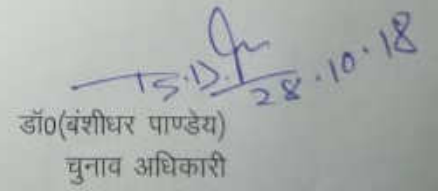 28.10.18
डॉ0(बंशीधर पाण्डेय)
चुनाव अधिकारी